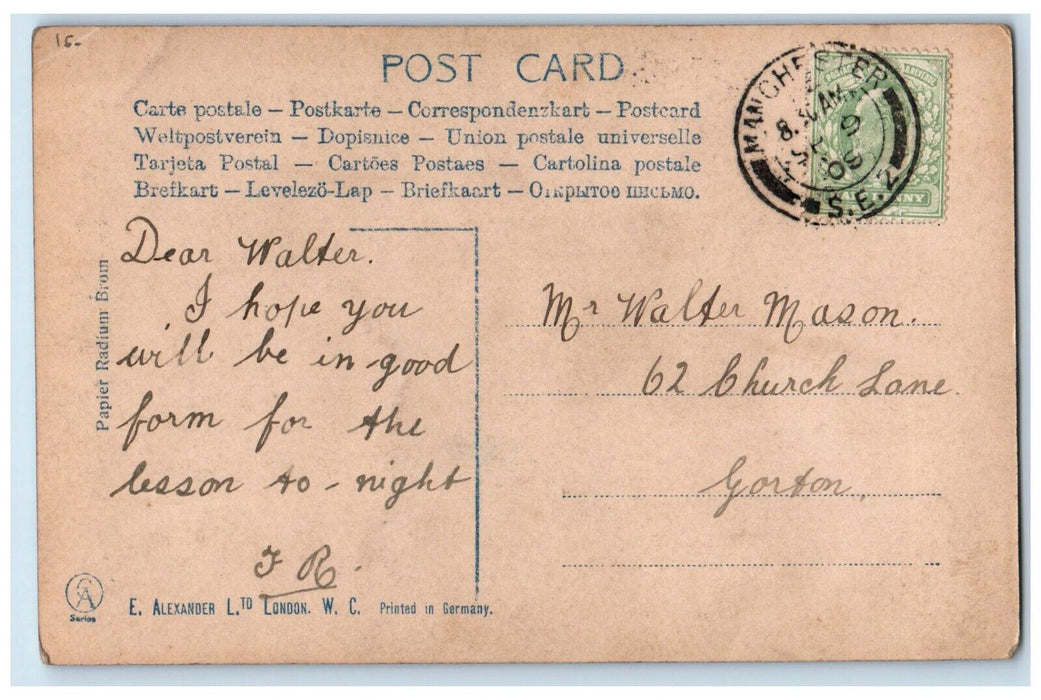 15-
POST CARD
Carte postale – Postkarte – Correspondenzkart – Postcard
Weltpostverein – Dopisnice – Union postale universelle
Tarjeta Postal – Cartões Postaes – Cartolina postale
Brefkart – Levelező-Lap – Briefkaart – Открытое письмо.
MANCHESTER
8.30AM
9
09
S.E.2
Papier Radium Brom
Dear Walter.
I hope you
will be in good
form for the
lesson to-night
F R.
Mr Walter Mason.
62 Church Lane
Gorton,
Series
E. ALEXANDER L.TD LONDON. W. C. Printed in Germany.